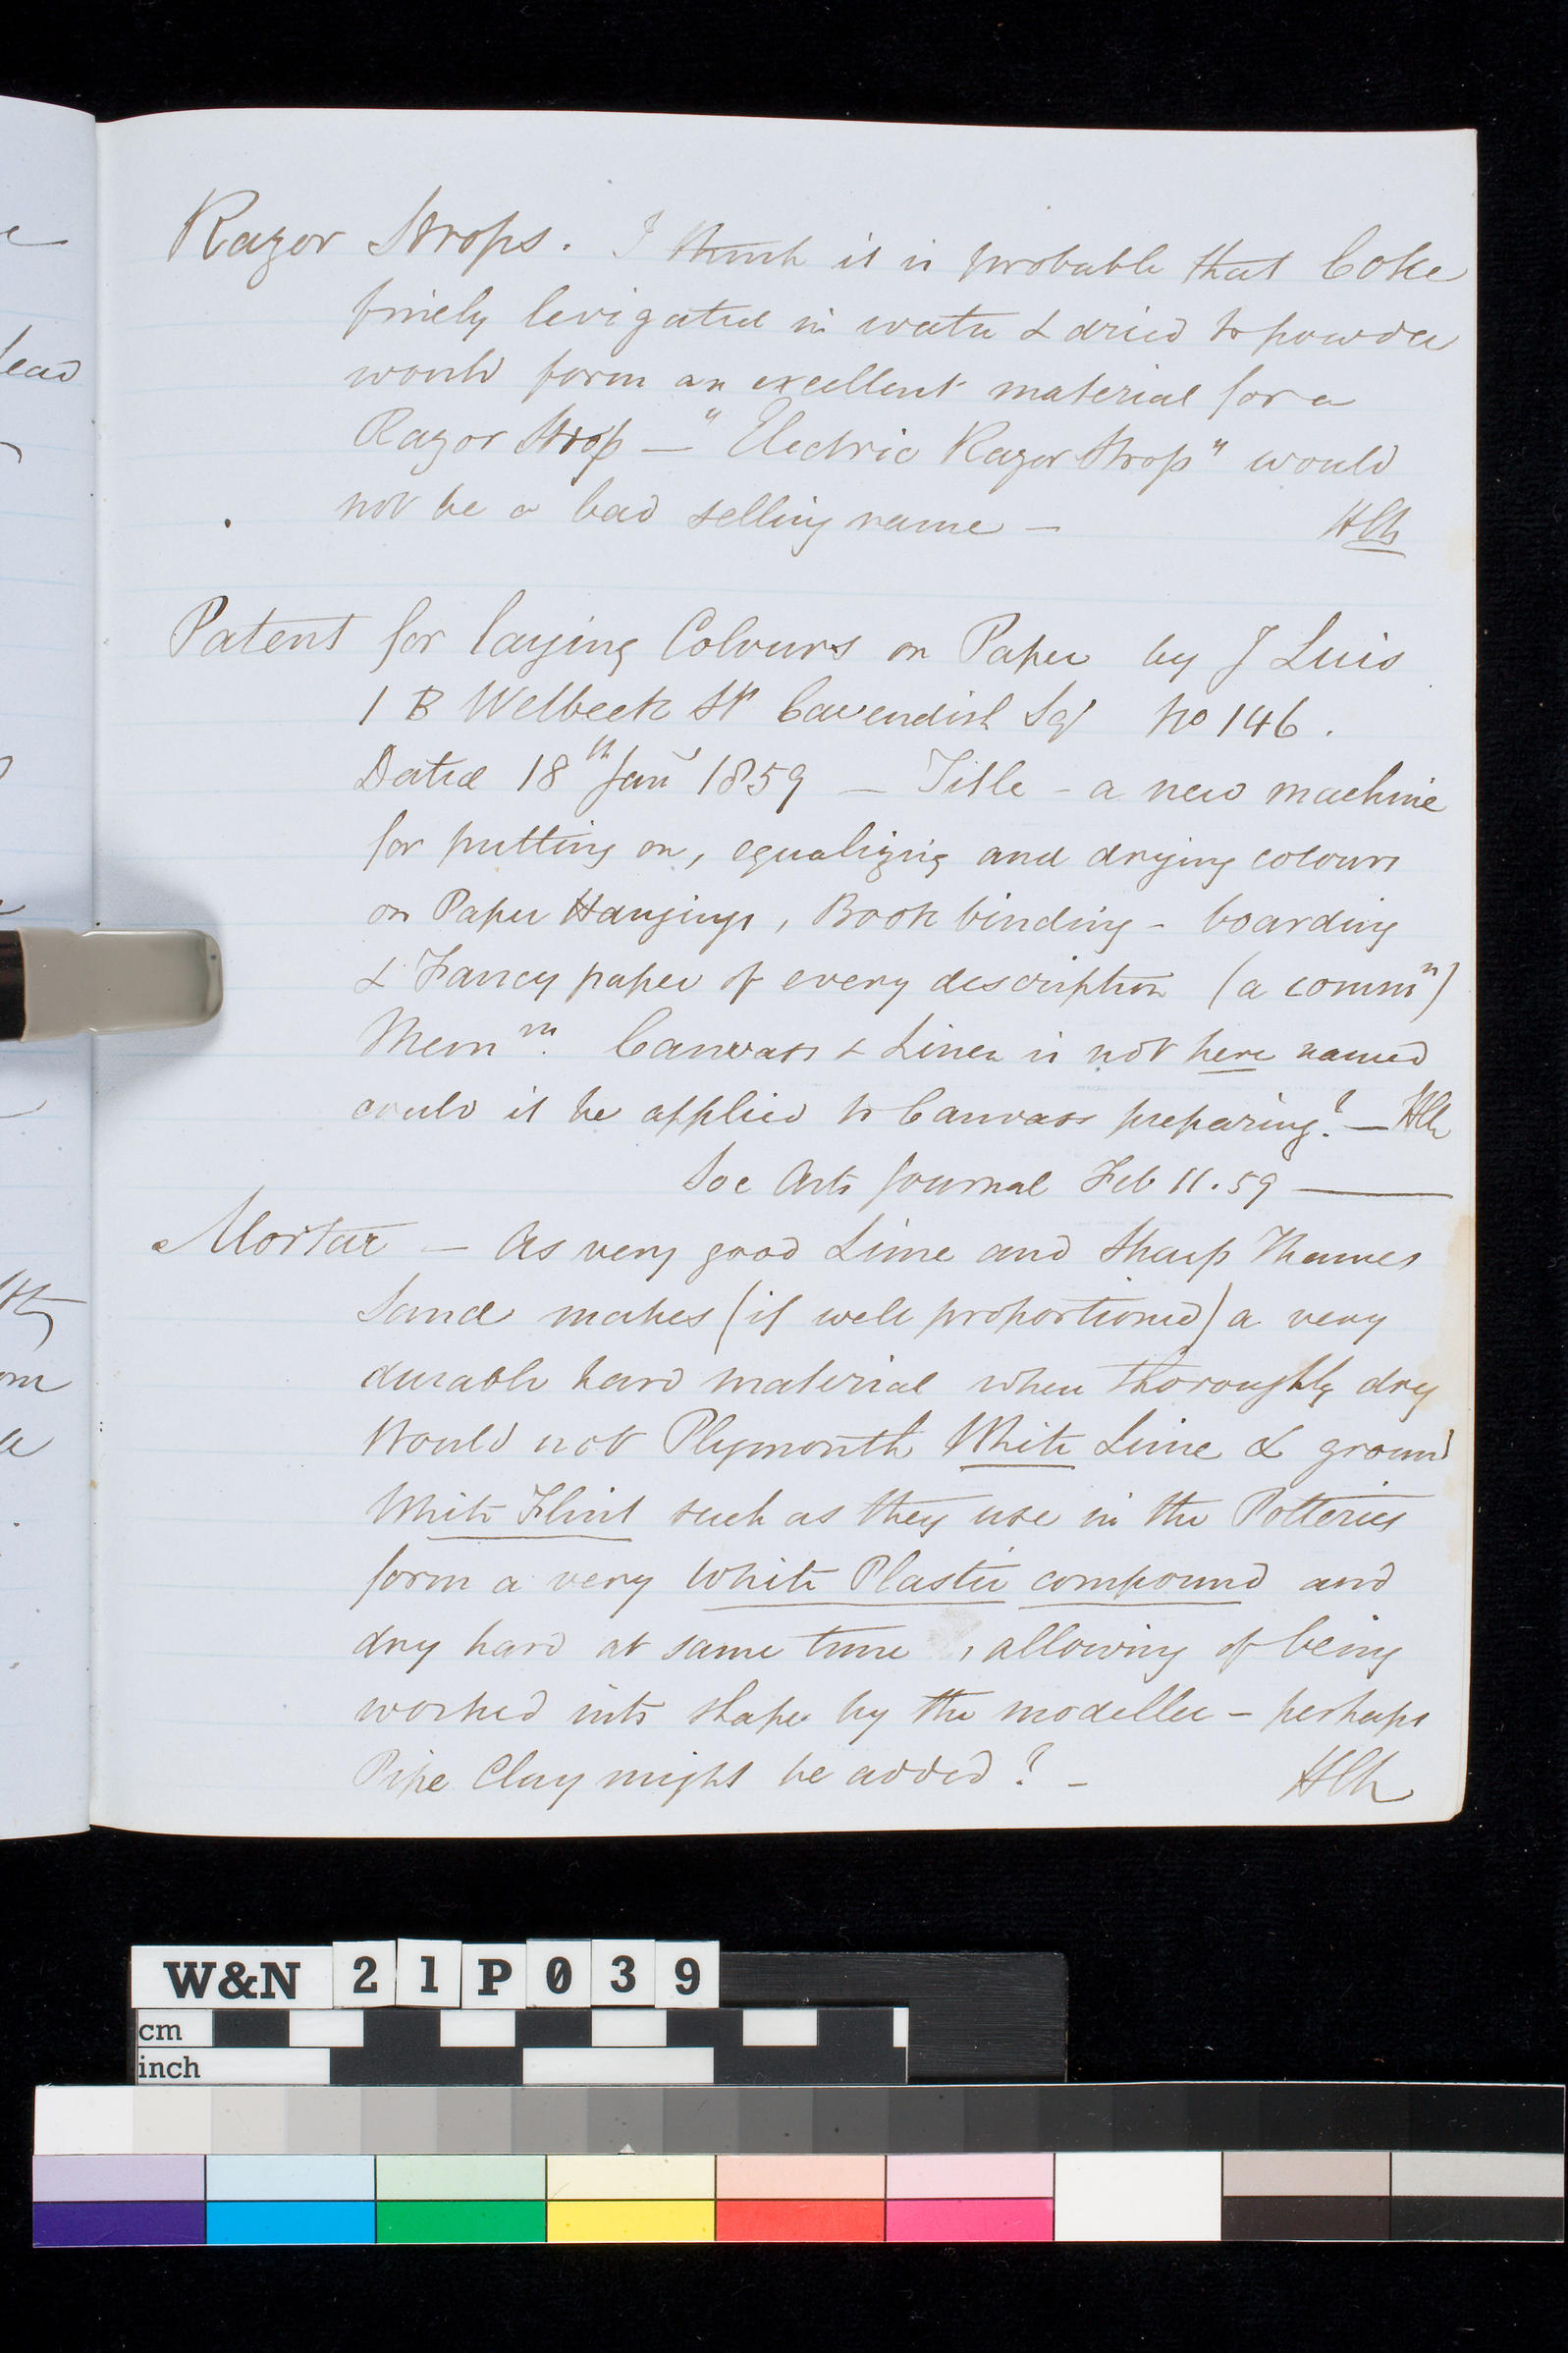 Razor Strops. I think it is probable that Coke
finely levigated in water & dried to powder
would form an excellent material for a
Razor Strop — "Electric Razor Strop" would
not be a bad selling name —
Patent for laying Colours on Paper by J Luis
1 B Welbeck St Cavendish Sq No 146.
Dated 18th Jany 1859 — Title - a new machine
for putting on, equalizing and drying colours
on Paper Hangings, Book binding - boarding
& Fancy paper of every description (a commn)
Memm. Canvass & Linen is not here named
could it be applied to Canvass preparing? —
Soc Arts Journal Feb 11. 59 —
Mortar — As very good Lime and Sharp Thames
Sand makes (if well proportioned) a very
durable hard material when thoroughly dry
Would not Plymouth White Lime & ground
White Flint such as they use in the Potteries
form a very White Plastic compound and
dry hard at same time, allowing of being
worked into shape by the modeller - perhaps
Pipe Clay might be added? -
W&N 21P039
cm
inch
ead